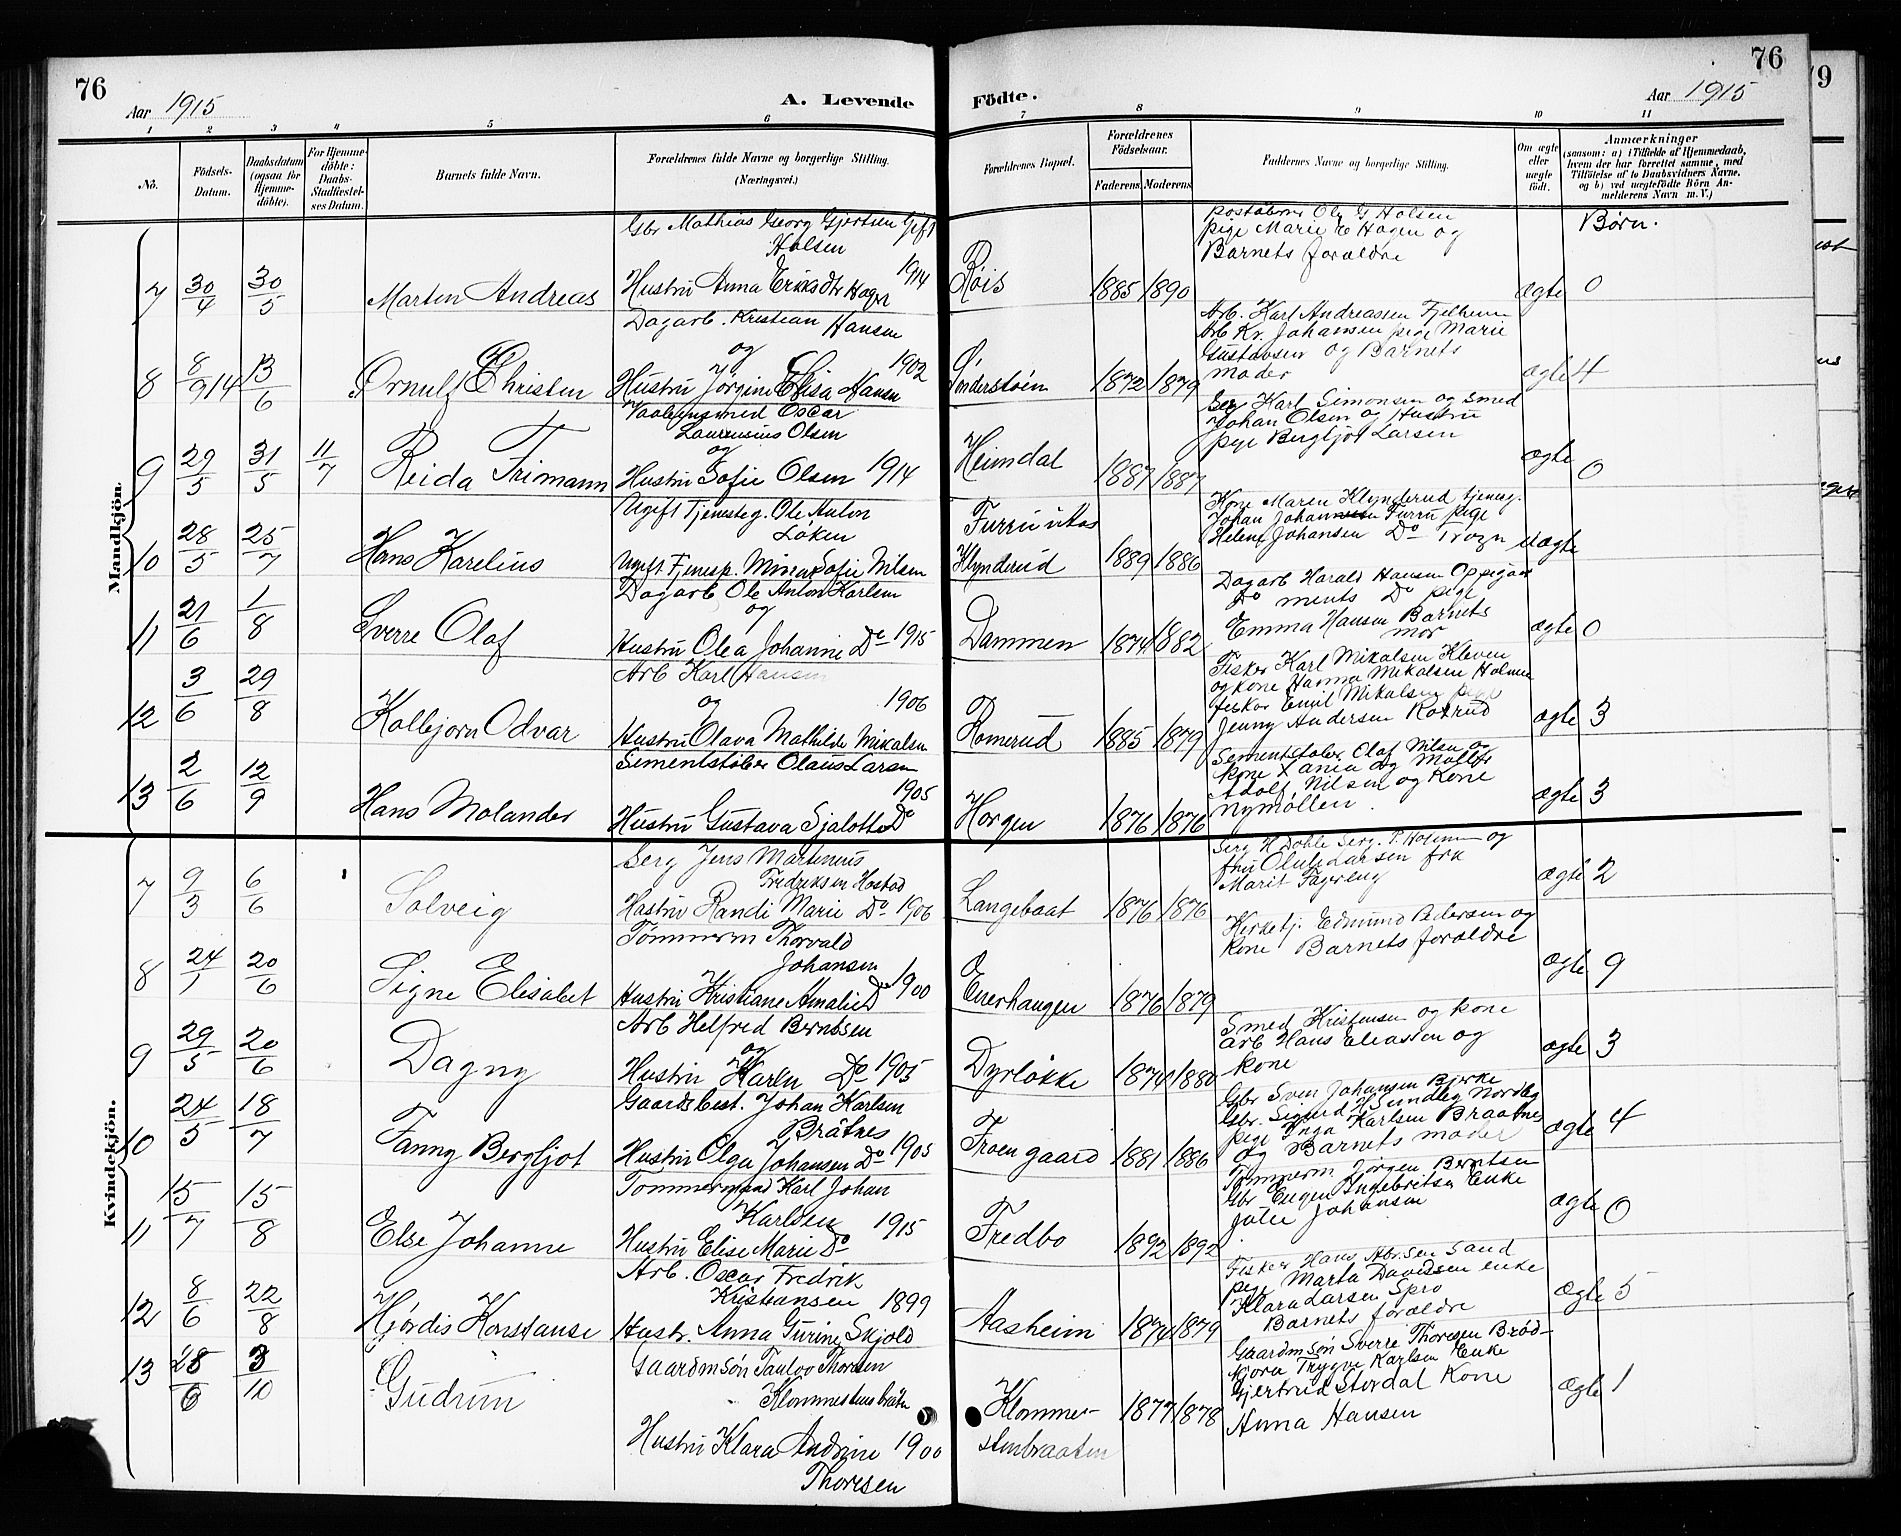 76
76
Aar 1915
A. Levende Födte.
Aar 1915
79
1 2 3 4 5 6 7 8 9 10 11
No.
Födsels-Datum.
Daabsdatum (ogsaa for Hjemme-döbte).
For Hjemme-döbte: Daabs-Stadfæstel-ses Datum.
Barnets fulde Navn.
Forældrenes fulde Navne og borgerlige Stilling. (Næringsvei.)
Forældrenes Bopæl.
Forældrenes Födselsaar.
Faderens Moderens
Faddernes Navne og borgerlige Stilling.
Om ægte eller uægte födt.
Anmærkninger
(saasom: a) i Tilfælde af Hjemmedaab, hvem der har forrettet samme, med Tilföielse af to Daabsvidners Navne, og b) ved uægtefödte Börn An-melderens Navn m. V.)
Børn.
Mandkjön.
Gbr Mathias Georg Gjertsen Gift
Holsen
7 30/4 30/5 Marten Andreas Hustru Anna Eriksdtr Hagen 1914 Røis 1885 1890
Ole G Holsen
pige Marie E Hagen og
Barnets forældre
ægte 0
Dagarb. Kristian Hansen
og
8 8/9 14 13/6 Ørnulf Christen Hustru Jørgine Elisa Hansen 1902 Sønderstøen 1872 1879
Arb. Karl Andreassen Fjelheim
Arb Kr. Johansen pige Marie
Gustavsen og Barnets
moder
ægte 4
Oscar
Laurensius Olsen
og
9 29/5 31/5 11/7 Reida Frimann Hustru Sofie Olsen 1914 Heimdal 1887 1887
Karl Simonsen og Smed
Johan Olsen og Hustru
pige Bergljot Larsen
ægte 0
Ugift Tjenesteg. Ole Anton
Løken
10 28/5 25/7 Hans Karelius Ugift Tjenesp. Minna Sofie Nilsen
Furru
Klynderud 1889 1886
Kone Maren Klynderud tjenesg.
Johan Johannesen Furru pige
Helene Johansen Do
uægte
Dagarb Ole Anton Karlsen
og
11 21/6 1/8 Sverre Olaf Hustru Olea Johanne Do 1915 Dammen 1874 1882
Dagarb Harald Hansen Oppegaard
Do Do pige
Emma Hansen Barnets
mor
ægte 0
Arb Karl Hansen
og 1906
12 3/6 29/8 Kolbjørn Odvar Hustru Olava Mathilde Mikalsen Romerud 1885 1879
Fisker Karl Mikalsen Kleven
og kone Hanna Mikalsen Holmen
fisker Emil Mikalsen pige
Jenny Andersen
ægte 3
Sementstøber Olaus Larsen
1905
13 2/6 12/9 Hans Molander Hustru Gustava Sjalotte Do Horgen 1876 1876
Sementstøber Olaf Nilsen og
kone og Møller
Adolf Nilsen og Kone
Nymøllen.
ægte 3
Kvindekjön.
Serg Jens Martinius
Fredriksen Hostad
7 9/3 6/6 Solveig Hustru Randi Marie Do 1906 Langebaat 1876 1876
Serg H Dohle Serg. P.
fru Larsen frk
Marit Fagereng
ægte 2
Tømmerm Thorvald
Johansen
8 24/1 20/6 Signe Elisabet Hustru Kristiane Amalie Do 1900 Enerhaugen 1876 1879
Kirketj. Edmund Pedersen og
kone Barnets forældre
ægte 9
Arb Helfred Berntsen
og
9 29/5 20/6 Dagny Hustru Karen Do 1905 Dyrløkke 1874 1880
Smed Kristensen og kone
Arb Hans Eliassen og
kone
ægte 3
Gaardsbest. Johan Karlsen
Bråtnes
10 24/5 18/7 Fanny Bergljot Hustru Olga Johansen Do 1905 Froen gaard 1881 1886
Gbr Sven Johansen Bjerke
Gbr. Sigurd H Sundleg Nordby
pige Inga Karlsen Braatnes
og Barnets moder
ægte 4
Tømmermand Karl Johan
Karlsen
11 15/7 15/8 Else Johanne Hustru Elise Marie Do 1915 Fredbo 1892 1892
Tømmerm Jørgen Berntsen
Gbr Eugen Ingebretsen Enke
Julie Johansen
ægte 0
Arb. Oscar Fredrik
Kristiansen 1899
12 8/6 22/8 Hjørdis Konstanse Hustr. Anna Gurine Skjold Aasheim 1874 1879
Fisker Hans Sand
pige Marta Davidsen enke
Klara Larsen Spro
Barnets forældre
ægte 5
Gaardmsøn Thoresen
Klommestensbråten
13 28/6 3/10 Gudrun
Hustru Klara Andrine 1900
Thoresen
Klommer-
stenbraaten 1877 1878
Gaardmsøn Sverre Thoresen Brød-
kjører Trygve Karlsen Enke
Gjertrud Stordal Kone
Anna Hansen
ægte 1